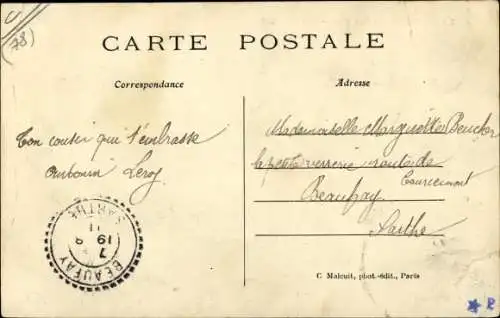 (78)
CARTE POSTALE
Correspondance
Adresse
Ton cousin qui t'embrasse
Leroy
Mademoiselle Marguerite
la petite verrerie route de
Beaufay
Sarthe
BEAUFAY
SARTHE
7
19
11
C Malcuit, phot.-édit., Paris
R